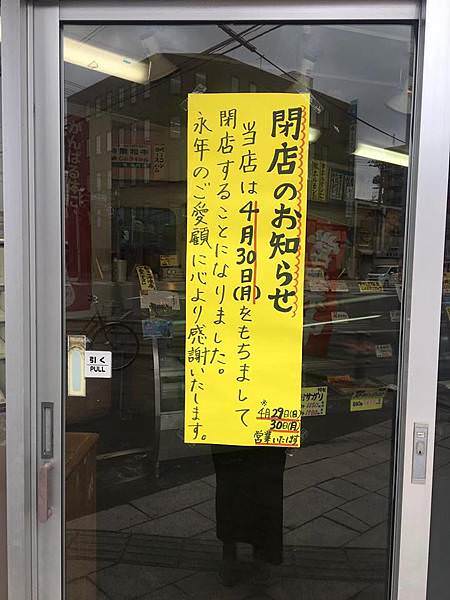 閉店のお知らせ
当店は4月30日(月)をもちまして
閉店することになりました。
永年のご愛顧に心より感謝いたします。
※4月29日(日)
30日(月)
営業いたします
引く
PULL